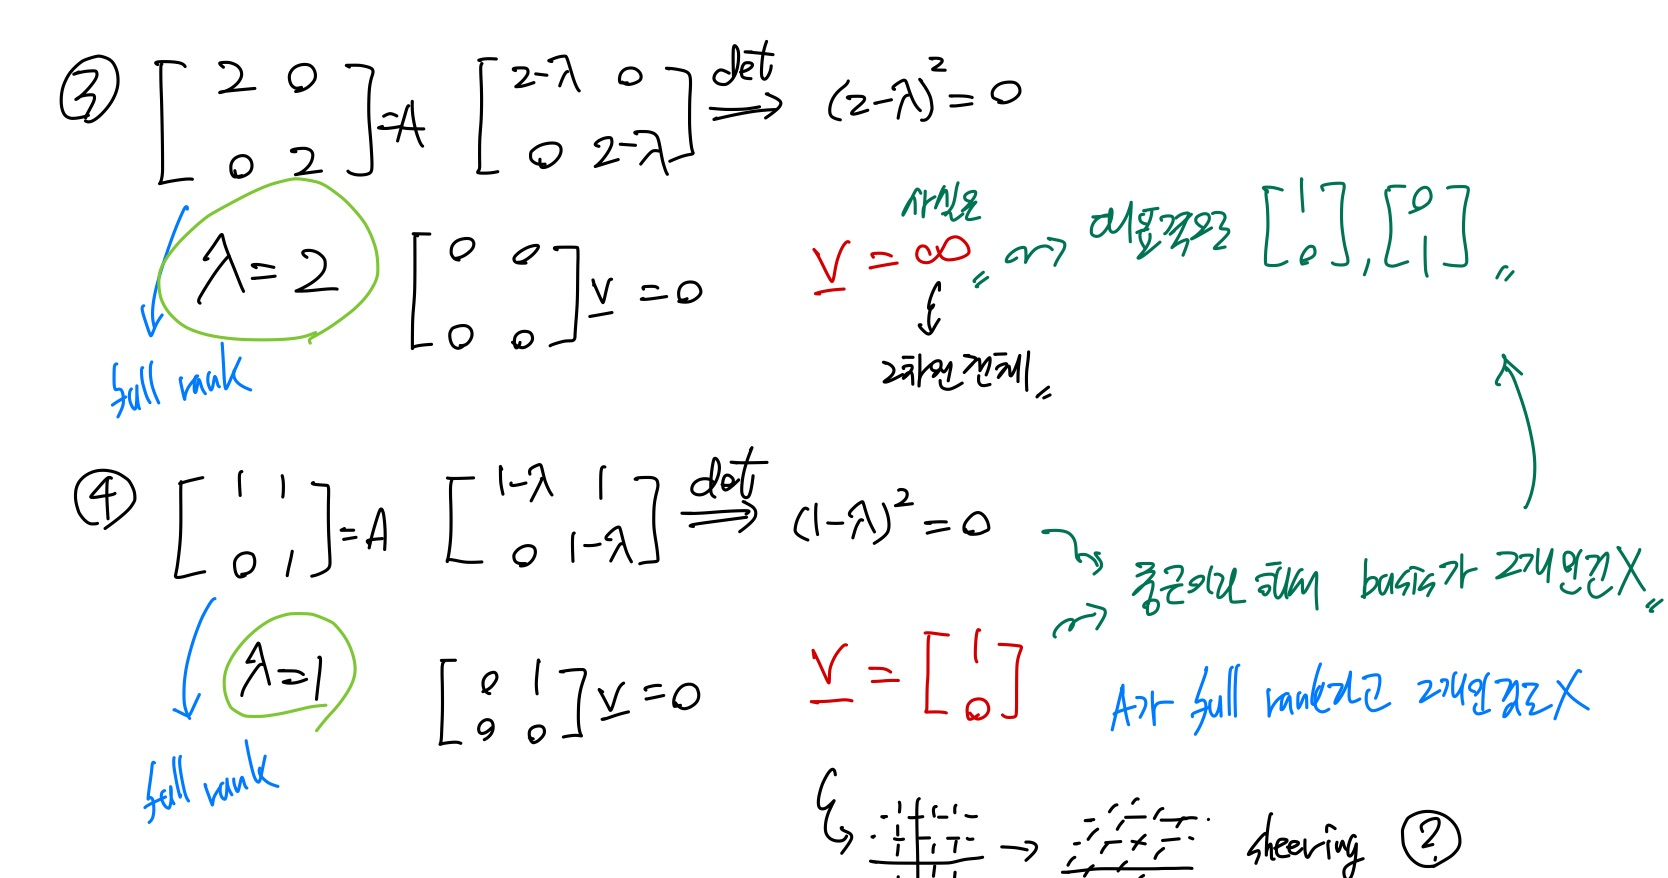 ③ [2 0; 0 2] = A [2-λ 0; 0 2-λ] det ⟹ (2-λ)² = 0
λ = 2 [0 0; 0 0] v = 0 사실은 v = ∞〃 ⇝ 대표적으로 [1; 0], [0; 1]〃
full rank 2차원 전체〃
④ [1 1; 0 1] = A [1-λ 1; 0 1-λ] det ⟹ (1-λ)² = 0
중근이라 해서 basis가 2개인건 X〃
λ = 1 [0 1; 0 0] v = 0 v = [1; 0]
A가 full rank라고 2개인 것도 X
full rank
→ sheering ?